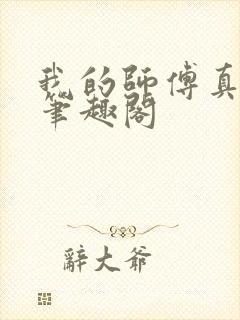 我的師傅真
筆趣閣
辭大爺